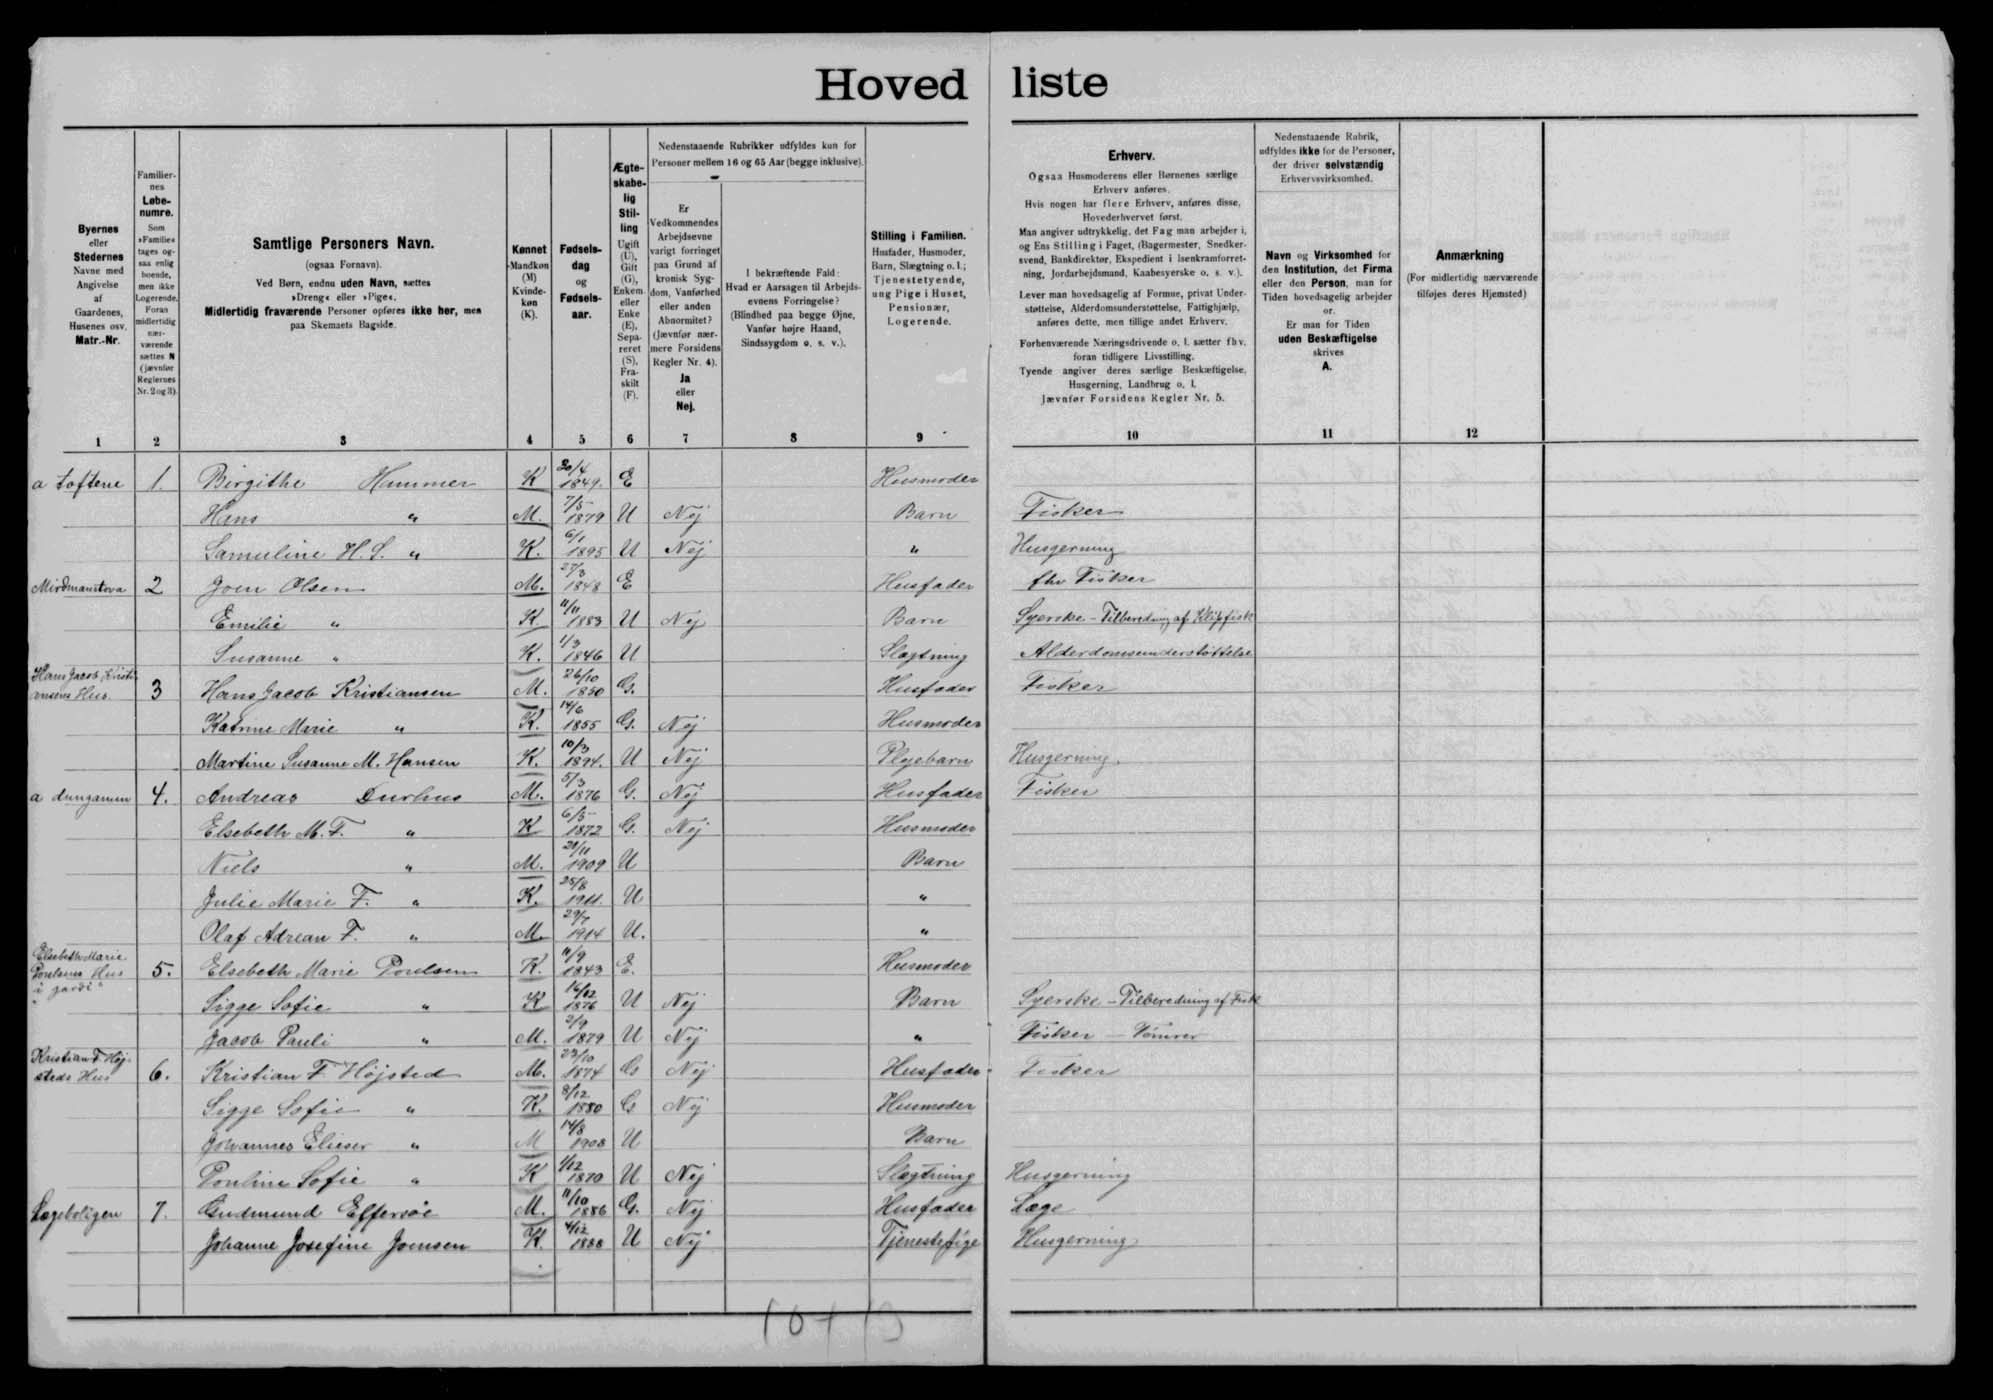 Hoved liste
Byernes
eller
Stedernes
Navne med
Angivelse
af
Gaardenes,
Husenes osv.
Matr.-Nr.
1
Familier-
nes
Løbe-
numre.
Som
»Familie«
tages og-
saa enlig
boende,
men ikke
Logerende.
Foran
midlertidig
nær-
værende
sættes N
(jævnfør
Reglernes
Nr. 2 og 3).
2
Samtlige Personers Navn.
(ogsaa Fornavn).
Ved Børn, endnu uden Navn, sættes
»Dreng« eller »Pige«.
Midlertidig fraværende Personer opføres ikke her, men
paa Skemaets Bagside.
3
Kønnet
Mandkøn
(M)
Kvinde-
køn
(K).
4
Fødsels-
dag
og
Fødsels-
aar.
5
Ægte-
skabe-
lig
Stil-
ling
Ugift
(U),
Gift
(G),
Enkem.
eller
Enke
(E),
Sepa-
reret
(S),
Fra-
skilt
(F).
6
Nedenstaaende Rubrikker udfyldes kun for
Personer mellem 16 og 65 Aar (begge inklusive).
Er
Vedkommendes
Arbejdsevne
varigt forringet
paa Grund af
kronisk Syg-
dom, Vanførhed
eller anden
Abnormitet?
(Jævnfør nær-
mere Forsidens
Regler Nr. 4).
Ja
eller
Nej.
7
I bekræftende Fald:
Hvad er Aarsagen til Arbejds-
evnens Forringelse?
(Blindhed paa begge Øjne,
Vanfør højre Haand,
Sindssygdom o. s. v.).
8
Stilling i Familien.
Husfader, Husmoder,
Barn, Slægtning o. l.;
Tjenestetyende,
ung Pige i Huset,
Pensionær,
Logerende.
9
Erhverv.
Ogsaa Husmoderens eller Børnenes særlige
Erhverv anføres.
Hvis nogen har flere Erhverv, anføres disse,
Hovederhvervet først.
Man angiver udtrykkelig, det Fag man arbejder i,
og Ens Stilling i Faget, (Bagermester, Snedker-
svend, Bankdirektør, Ekspedient i Isenkramforret-
ning, Jordarbejdsmand, Kaabesyerske o. s. v.).
Lever man hovedsagelig af Formue, privat Under-
støttelse, Alderdomsunderstøttelse, Fattighjælp,
anføres dette, men tillige andet Erhverv.
Forhenværende Næringsdrivende o. l. sætter fhv.
foran tidligere Livsstilling.
Tyende angiver deres særlige Beskæftigelse,
Husgerning, Landbrug o. l.
Jævnfør Forsidens Regler Nr. 5.
10
Nedenstaaende Rubrik,
udfyldes ikke for de Personer,
der driver selvstændig
Erhvervsvirksomhed.
Navn og Virksomhed for
den Institution, det Firma
eller den Person, man for
Tiden hovedsagelig arbejder
for.
Er man for Tiden
uden Beskæftigelse
skrives
A.
11
Anmærkning
(For midlertidig nærværende
tilføjes deres Hjemsted)
12
a toftene 1. Birgithe Hammer K 20/4 1849. E Husmoder
Hans " M. 7/5 1879 U Nej Barn Fisker
Samuline H. S. " K. 6/1 1895 U Nej " Husgerning
Miðmanstova 2 Joen Olsen M. 27/3 1848 E Husfader fhv Fisker
Emilie " K. 11/11 1883 U Nej Barn Syerske - Tilberedning af Klipfisk
Susanne " K. 1/3 1846 U Slægtning Alderdomsunderstøttelse
Hans Jacob Kristi-
ansens Hus. 3 Hans Jacob Kristiansen M. 26/10 1850 G. Husfader Fisker
Katrine Marie " K. 14/6 1855 G. Nej Husmoder
Martine Susanne M. Hansen K. 10/3 1894. U Nej Plejebarn Husgerning.
a dunganum 4. Andreas Durhus M. 5/3 1876 G. Nej Husfader Fisker
Elsebeth M. F. " K 6/5 1872 G. Nej Husmoder
Niels " M. 20/11 1909 U Barn
Julie Marie F. " K. 25/8 1911. U "
Olaf Adrean F. " M. 29/7 1914 U. "
Elsebeth Marie
Poulsens Hus
i garði" 5. Elsebeth Marie Poulsen K. 11/9 1843 E. Husmoder
Sigge Sofie " K 16/12 1876 U Nej Barn Syerske - Tilberedning af Fisk
Jacob Pauli " M. 2/9 1879 U Nej " Fisker - Tømrer
Kristian F Høj-
steds Hus 6. Kristian F. Højsted M. 23/10 1874 G Nej Husfader Fisker
Sigge Sofie " K. 8/12 1880 G Nej Husmoder
Johannes Elieser " M 14/8 1908 U Barn
Pouline Sofie " K 1/12 1870 U Nej Slægtning Husgerning
Lægeboligen 7. Gudmund Effersøe M. 11/10 1886 G. Nej Husfader Læge
Johanne Josefine Joensen K. 4/12 1888 U Nej Tjenestepige Husgerning
10 + 13